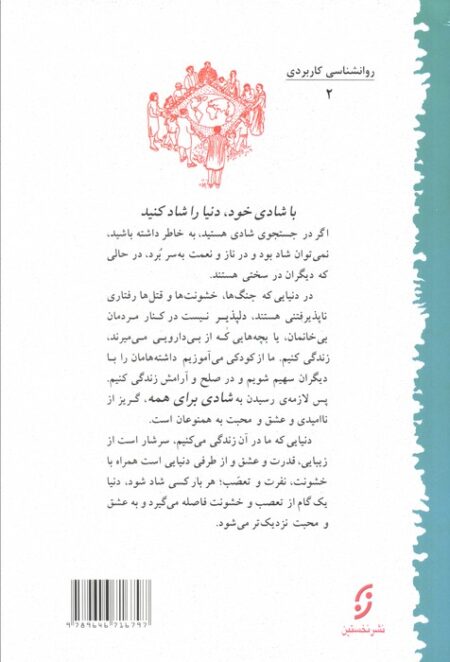 روانشناسی کاربردی
۲
با شادی خود، دنیا را شاد کنید
اگر در جستجوی شادی هستید، به خاطر داشته باشید،
نمی‌توان شاد بود و در ناز و نعمت به‌سر بُرد، در حالی
که دیگران در سختی هستند.
در دنیایی که جنگ‌ها، خشونت‌ها و قتل‌ها رفتاری
ناپذیرفتنی هستند، دلپذیر نیست در کنار مردمان
بی‌خانمان، یا بچه‌هایی که از بی‌دارویی می‌میرند،
زندگی کنیم. ما از کودکی می‌آموزیم داشته‌هامان را با
دیگران سهیم شویم و در صلح و آرامش زندگی کنیم.
پس لازمه‌ی رسیدن به شادی برای همه، گریز از
ناامیدی و عشق و محبت به همنوعان است.
دنیایی که ما در آن زندگی می‌کنیم، سرشار است از
زیبایی، قدرت و عشق و از طرفی دنیایی است همراه با
خشونت، نفرت و تعصّب؛ هر بار کسی شاد شود، دنیا
یک گام از تعصب و خشونت فاصله می‌گیرد و به عشق
و محبت نزدیک‌تر می‌شود.
نشر نخستین
9789646716797